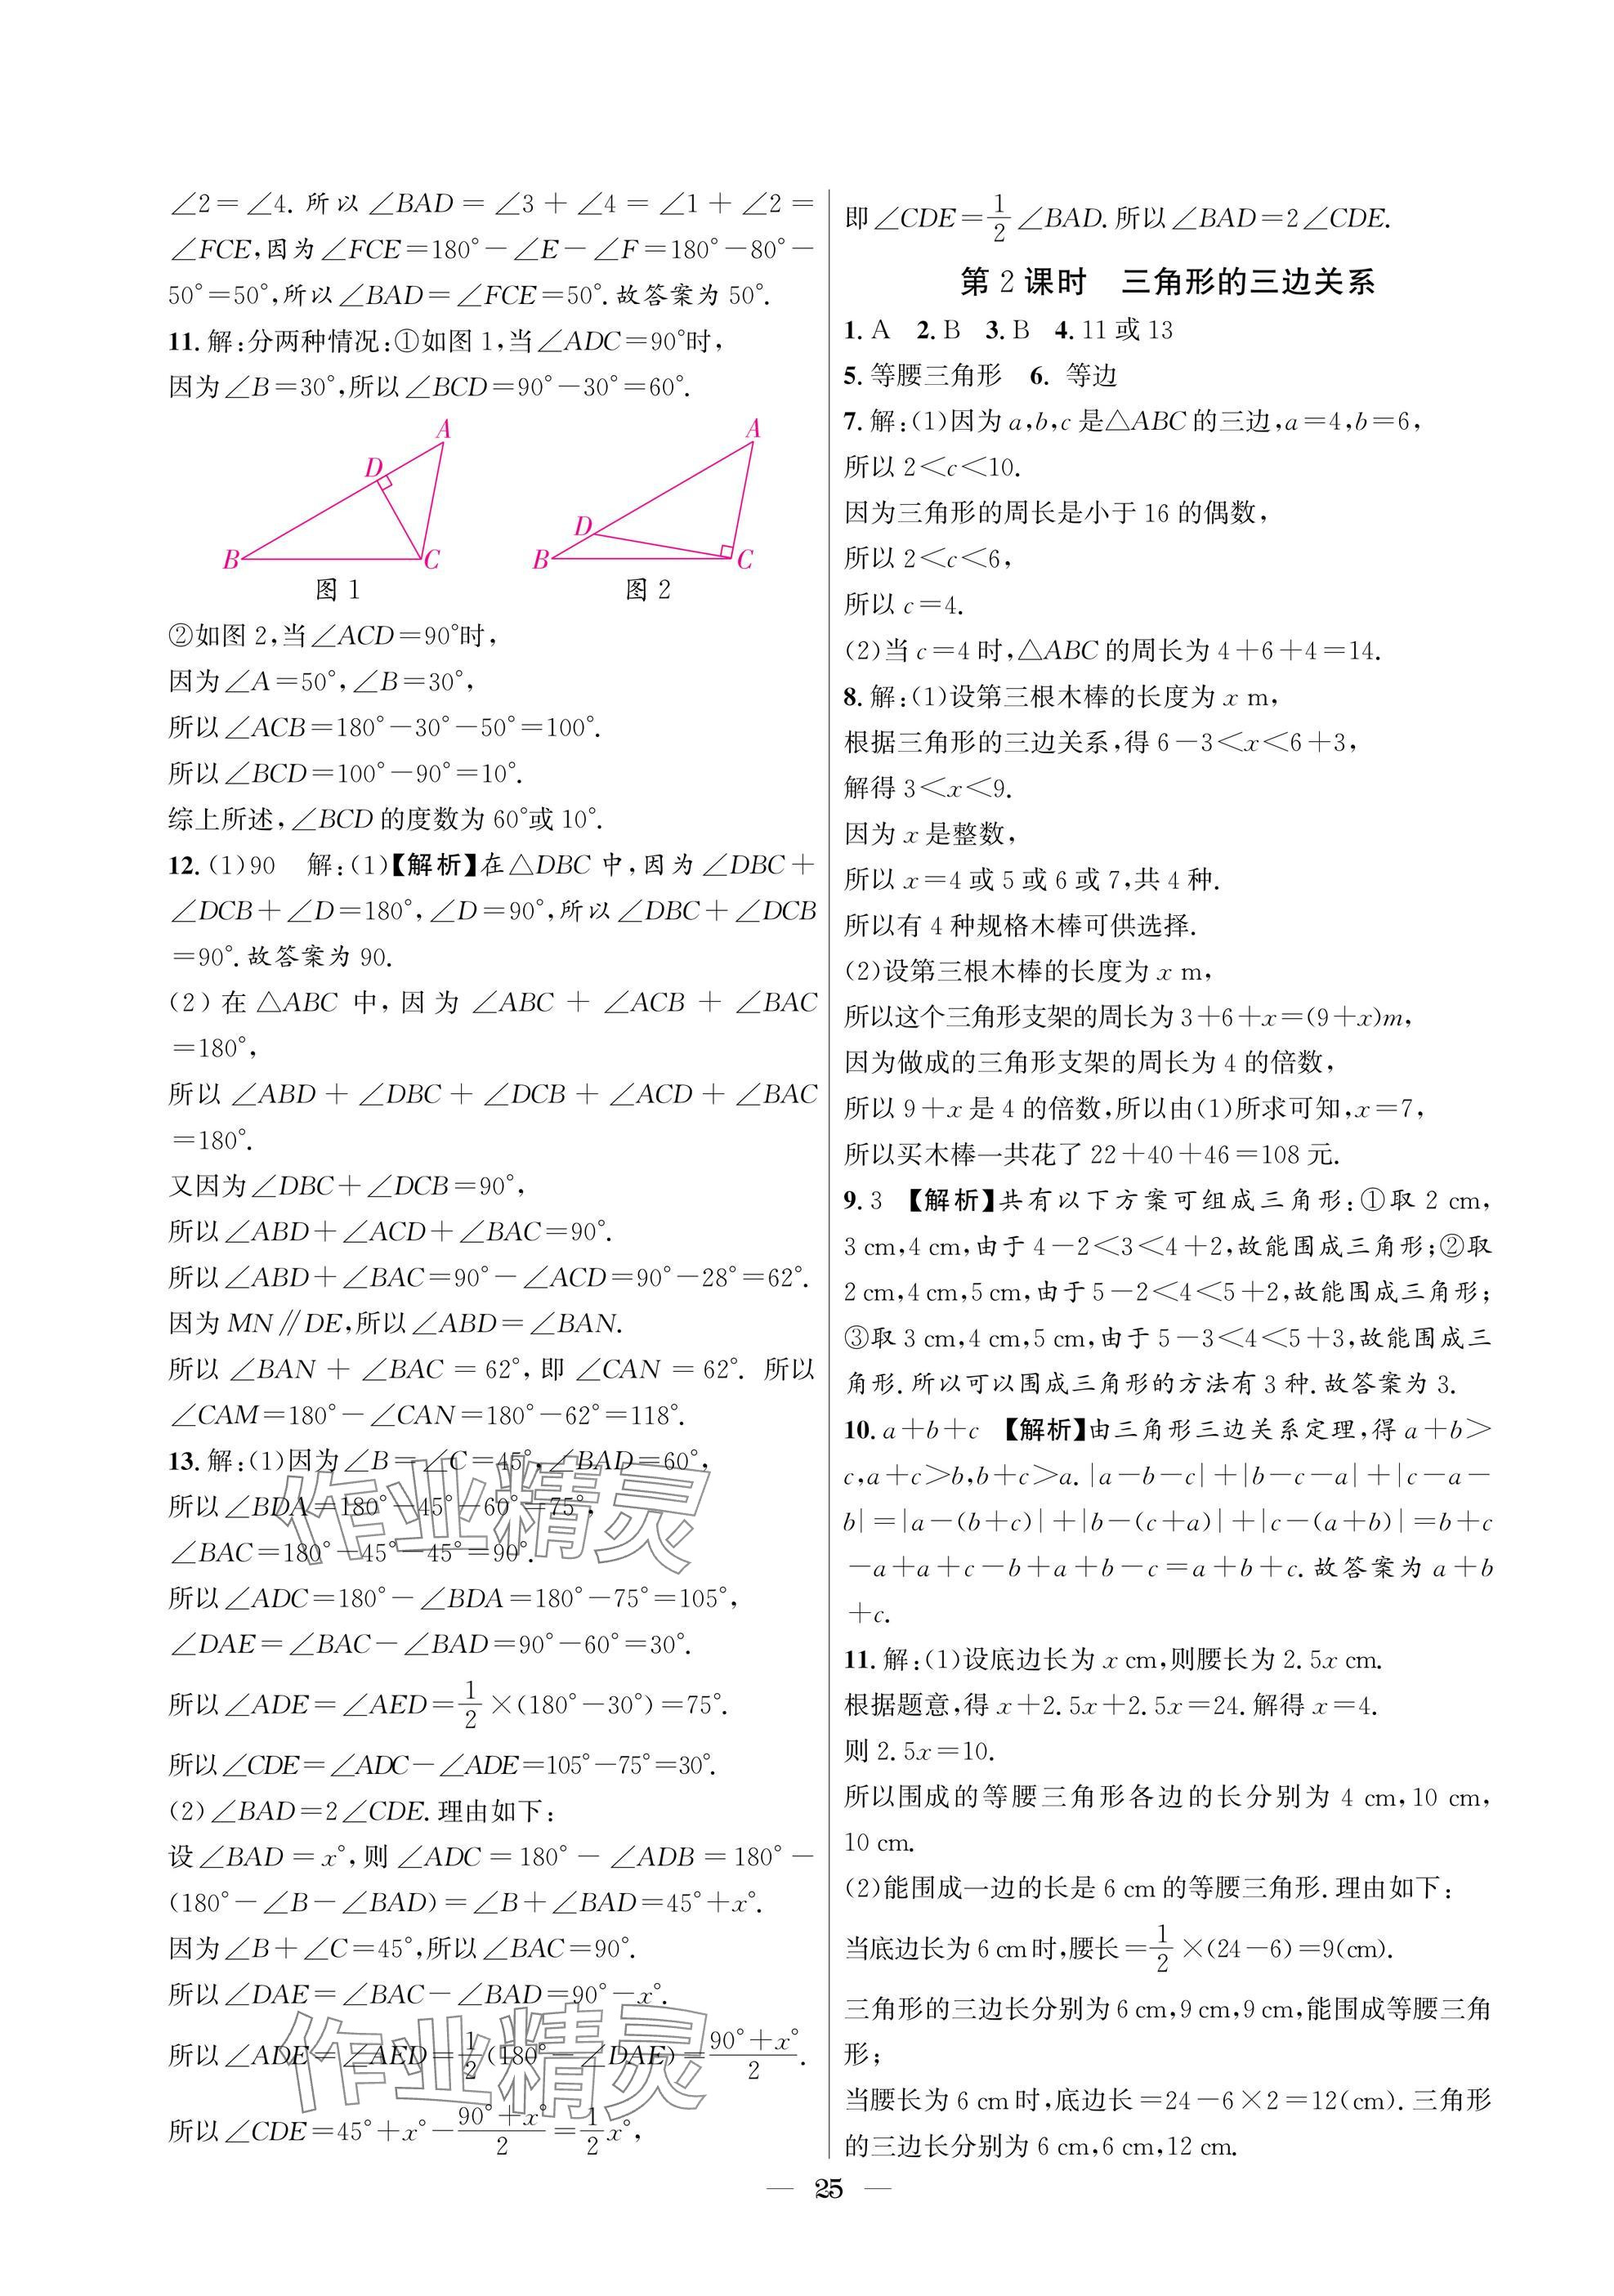 ∠2=∠4. 所以∠BAD=∠3+∠4=∠1+∠2=
∠FCE,因为∠FCE=180°-∠E-∠F=180°-80°-
50°=50°,所以∠BAD=∠FCE=50°.故答案为50°.
11.解:分两种情况:①如图1,当∠ADC=90°时,
因为∠B=30°,所以∠BCD=90°-30°=60°.
A
D
B
C
图1
A
D
B
C
图2
②如图2,当∠ACD=90°时,
因为∠A=50°,∠B=30°,
所以∠ACB=180°-30°-50°=100°.
所以∠BCD=100°-90°=10°.
综上所述,∠BCD的度数为60°或10°.
12.(1)90 解:(1)【解析】在△DBC中,因为∠DBC+
∠DCB+∠D=180°,∠D=90°,所以∠DBC+∠DCB
=90°.故答案为90.
(2)在△ABC中,因为∠ABC+∠ACB+∠BAC
=180°,
所以∠ABD+∠DBC+∠DCB+∠ACD+∠BAC
=180°.
又因为∠DBC+∠DCB=90°,
所以∠ABD+∠ACD+∠BAC=90°.
所以∠ABD+∠BAC=90°-∠ACD=90°-28°=62°.
因为MN∥DE,所以∠ABD=∠BAN.
所以∠BAN+∠BAC=62°,即∠CAN=62°. 所以
∠CAM=180°-∠CAN=180°-62°=118°.
13.解:(1)因为∠B=∠C=45°,∠BAD=60°,
所以∠BDA=180°-45°-60°=75°,
∠BAC=180°-45°-45°=90°.
作业精灵
所以∠ADC=180°-∠BDA=180°-75°=105°,
∠DAE=∠BAC-∠BAD=90°-60°=30°.
所以∠ADE=∠AED=1/2×(180°-30°)=75°.
所以∠CDE=∠ADC-∠ADE=105°-75°=30°.
(2)∠BAD=2∠CDE.理由如下:
设∠BAD=x°,则∠ADC=180°-∠ADB=180°-
(180°-∠B-∠BAD)=∠B+∠BAD=45°+x°.
因为∠B+∠C=45°,所以∠BAC=90°.
所以∠DAE=∠BAC-∠BAD=90°-x°.
所以∠ADE=∠AED=1/2(180°-∠DAE)=(90°+x°)/2.
作业精灵
所以∠CDE=45°+x°-(90°+x°)/2=1/2x°,
即∠CDE=1/2∠BAD.所以∠BAD=2∠CDE.
第2课时 三角形的三边关系
1.A 2.B 3.B 4.11或13
5.等腰三角形 6. 等边
7.解:(1)因为a,b,c是△ABC的三边,a=4,b=6,
所以2<c<10.
因为三角形的周长是小于16的偶数,
所以2<c<6,
所以c=4.
(2)当c=4时,△ABC的周长为4+6+4=14.
8.解:(1)设第三根木棒的长度为x m,
根据三角形的三边关系,得6-3<x<6+3,
解得3<x<9.
因为x是整数,
所以x=4或5或6或7,共4种.
所以有4种规格木棒可供选择.
(2)设第三根木棒的长度为x m,
所以这个三角形支架的周长为3+6+x=(9+x)m,
因为做成的三角形支架的周长为4的倍数,
所以9+x是4的倍数,所以由(1)所求可知,x=7,
所以买木棒一共花了22+40+46=108元.
9.3 【解析】共有以下方案可组成三角形:①取2 cm,
3 cm,4 cm,由于4-2<3<4+2,故能围成三角形;②取
2 cm,4 cm,5 cm,由于5-2<4<5+2,故能围成三角形;
③取3 cm,4 cm,5 cm,由于5-3<4<5+3,故能围成三
角形.所以可以围成三角形的方法有3种.故答案为3.
10.a+b+c 【解析】由三角形三边关系定理,得a+b>
c,a+c>b,b+c>a.|a-b-c|+|b-c-a|+|c-a-
b|=|a-(b+c)|+|b-(c+a)|+|c-(a+b)|=b+c
-a+a+c-b+a+b-c=a+b+c.故答案为a+b
+c.
11.解:(1)设底边长为x cm,则腰长为2.5x cm.
根据题意,得x+2.5x+2.5x=24.解得x=4.
则2.5x=10.
所以围成的等腰三角形各边的长分别为4 cm,10 cm,
10 cm.
(2)能围成一边的长是6 cm的等腰三角形.理由如下:
当底边长为6 cm时,腰长=1/2×(24-6)=9(cm).
三角形的三边长分别为6 cm,9 cm,9 cm,能围成等腰三角
形;
当腰长为6 cm时,底边长=24-6×2=12(cm).三角形
的三边长分别为6 cm,6 cm,12 cm.
— 25 —